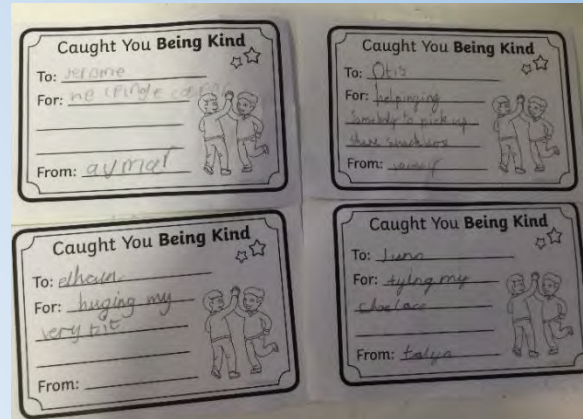 Caught You Being Kind
To: Jerome
For:
From: aymar
Caught You Being Kind
To: Otis
For: helpinging
somebody to pick up
there
From:
Caught You Being Kind
To:
For: huging my
very
From:
Caught You Being Kind
To:
For: tying my
shoelace
From: talya